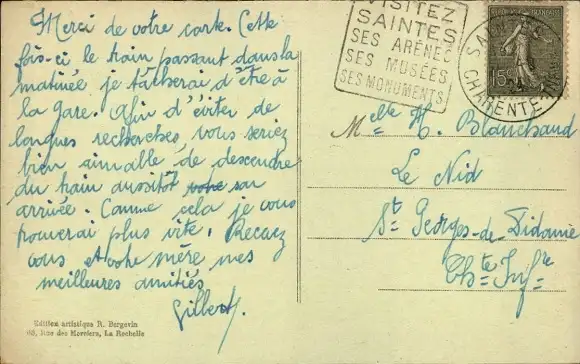 Merci de votre carte. Cette
fois-ci le train passant dans la
matinée je tâcherai d'être à
la gare. Afin d'éviter de
longues recherches, vous seriez
bien aimable de descendre
du train aussitôt votre son
arrivée. Comme cela je vous
trouverai plus vite. Recevez
vous et votre mère mes
meilleures amitiés
Gilbert.
Edition artistique R. Bergevin
Rue des Merciers, La Rochelle
VISITEZ
SAINTES
SES ARÈNES
SES MUSÉES
SES MONUMENTS
15
CHARENTE
Melle H. Blanchand
Le Nid
St Georges-de-Didonne
Chte Infre